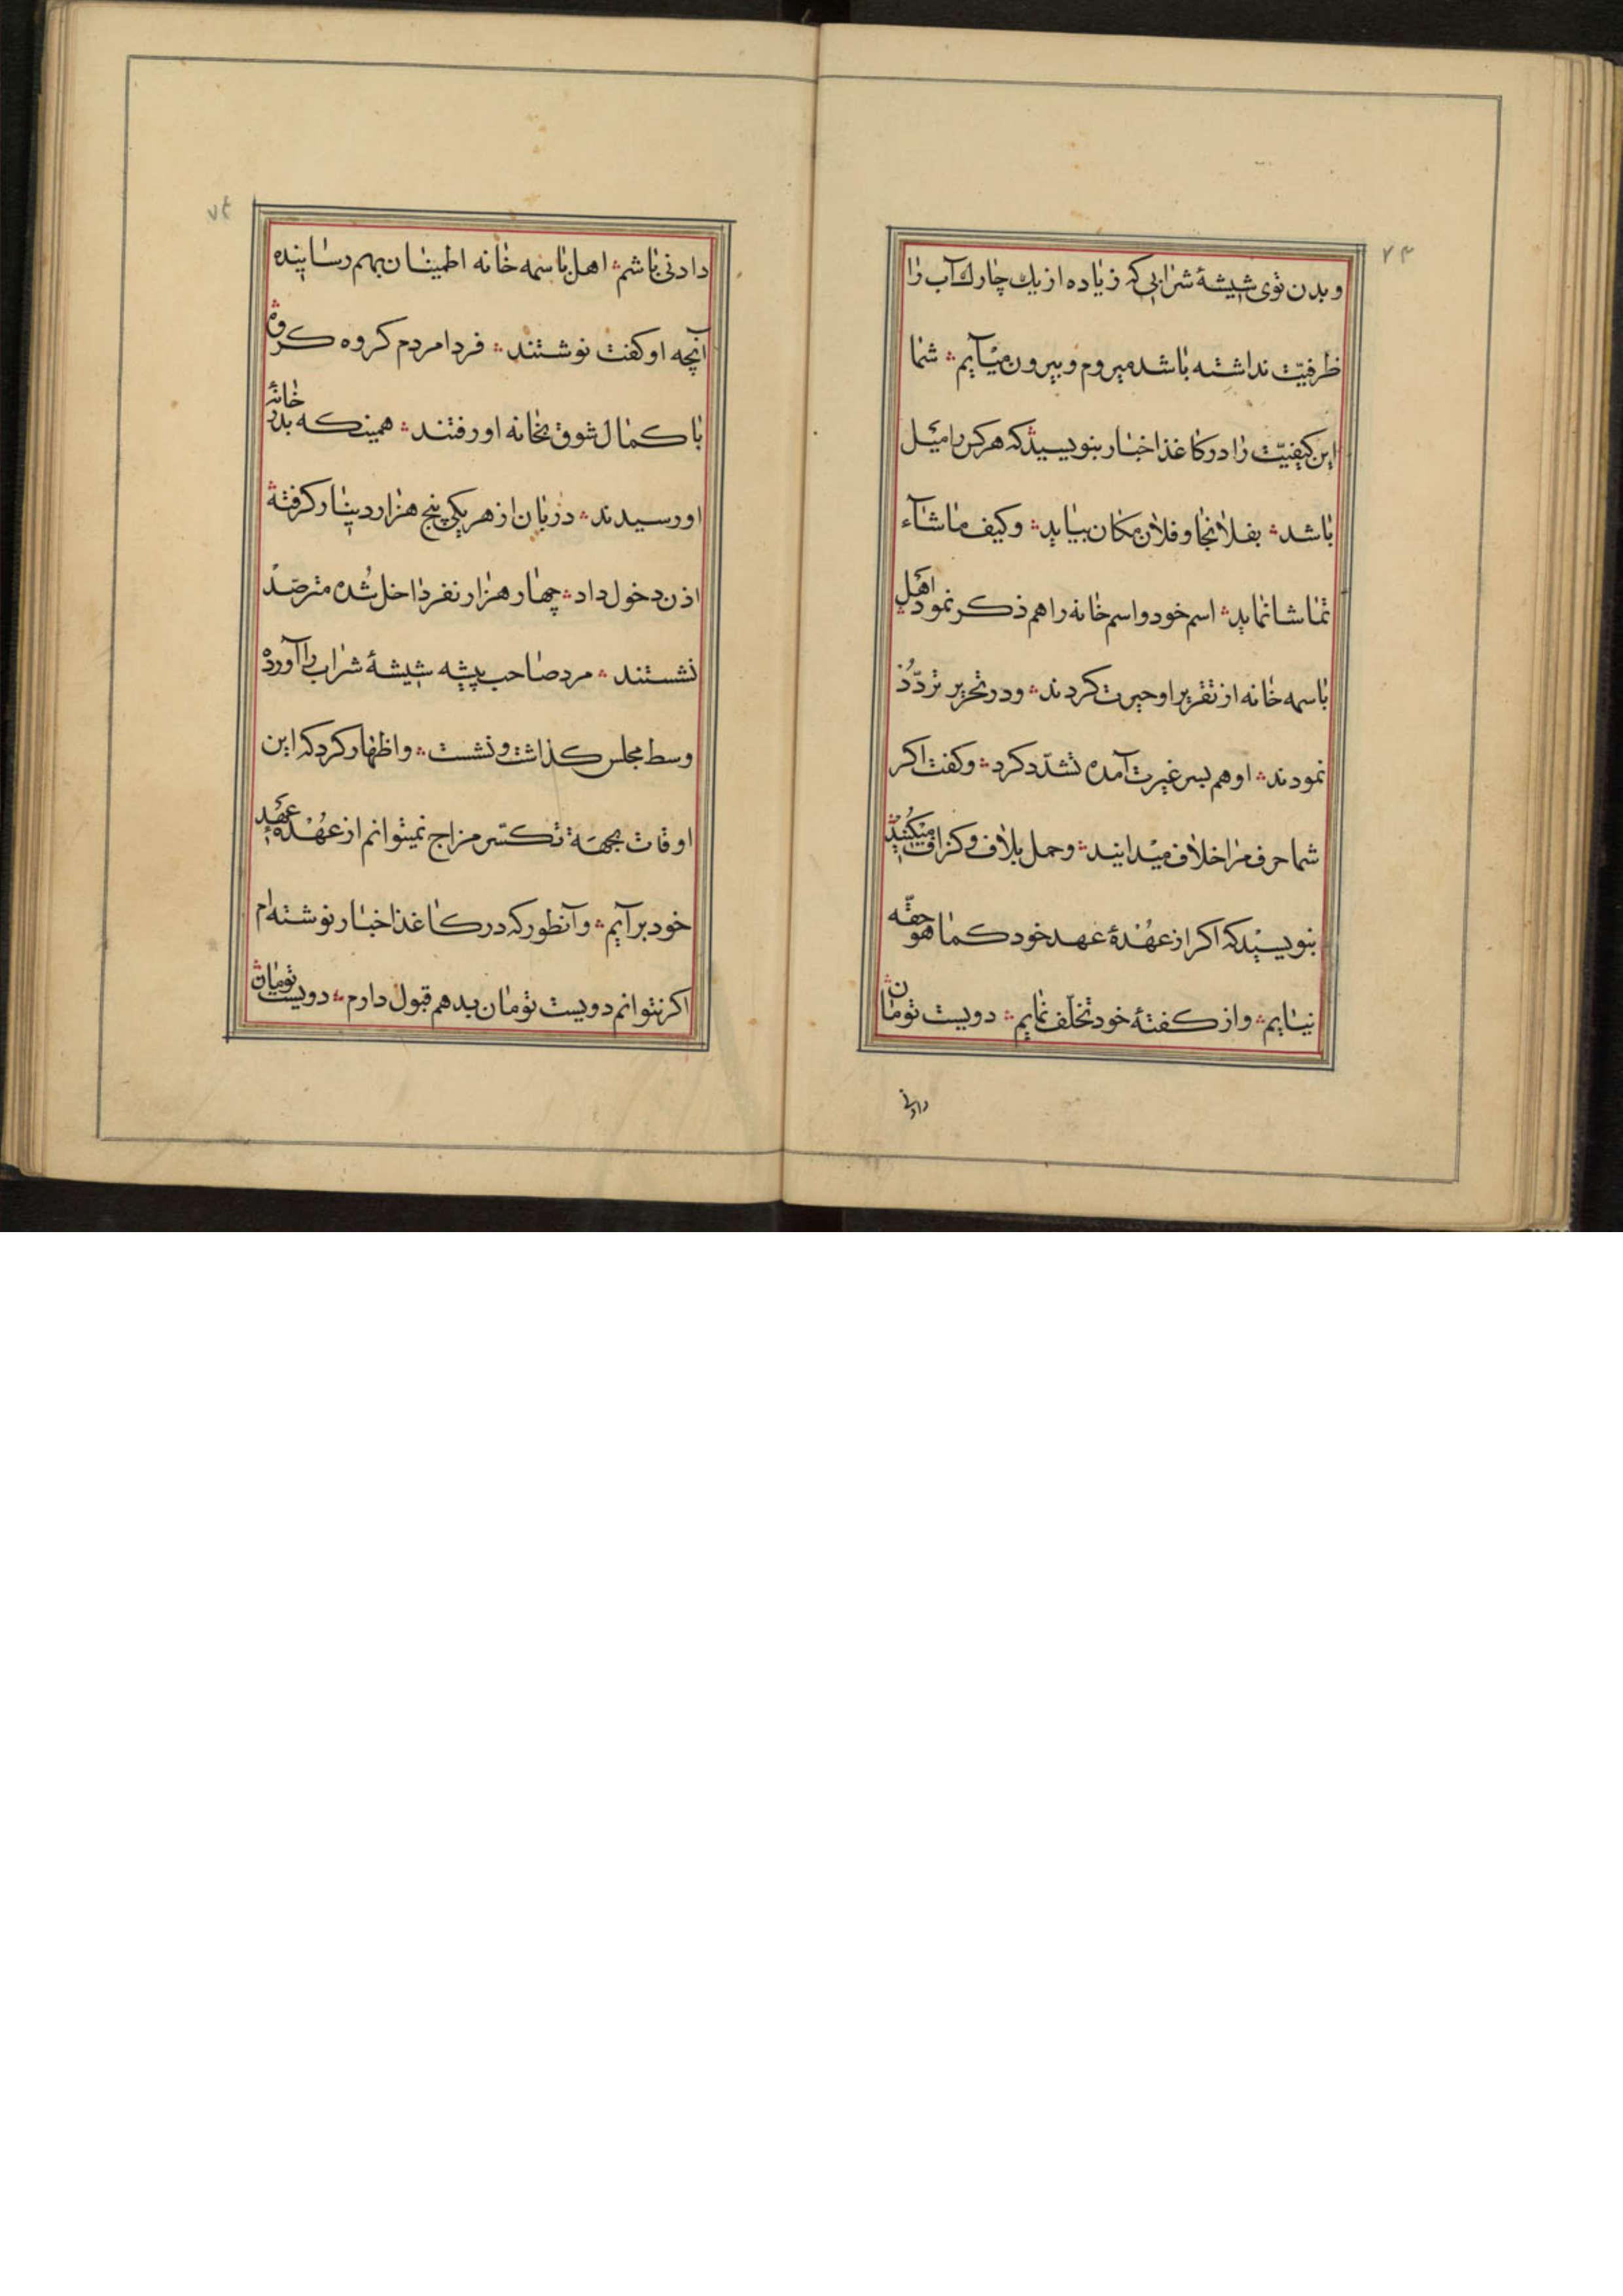 ۷۳
و بدن توی شیشهٔ شرابی که زیاده از یك چارك آب را
ظرفیّت نداشته باشد میروم و بیرون میآیم؞ شما
این کیفیّت را در کاغذ اخبار بنویسید؞ که هر کس را میل
باشد؞ بفلانجا و فلان مکان بیاید؞ و کیف ماشآء
تماشا نماید؞ اسم خود و اسم خانه را هم ذکر نمود؞ اهل
باسمه خانه از تقریر او حیرت کردند؞ و در تحریر تردّد
نمودند؞ او هم بسر غیرت آمده تشدّد کرد؞ و کفت اکر
شما حرف مرا خلاف میدانید؞ و حمل بلاف و کزاف میکنید؞
بنویسید که اکر از عهدهٔ عهد خود کما هو حقّه
نیایم؞ و از کفتهٔ خود تخلّف نمایم؞ دویست تومان
دادنی
۷۴
دادنی باشم؞ اهل باسمه خانه اطمینان بهم رسانیده
آنچه او کفت نوشتند؞ فردا مردم کروه کروه؞
با کمال شوق بخانه او رفتند؞ همینکه بدر خانهٔ
او رسیدند؞ دربان از هر یکی پنج هزار دینار کرفته؞
اذن دخول داد؞ چهار هزار نفر داخل شده مترصّد
نشستند؞ مرد صاحب پیشه شیشهٔ شراب را آورده
وسط مجلس کذاشت و نشست؞ و اظهار کرد که این
اوقات بجهة تکسّر مزاج نمیتوانم از عهدهٔ عهد
خود برآیم؞ و آنطور که در کاغذ اخبار نوشته‌ام
اکر نتوانم دویست تومان بدهم قبول دارم؞ دویست تومان؞